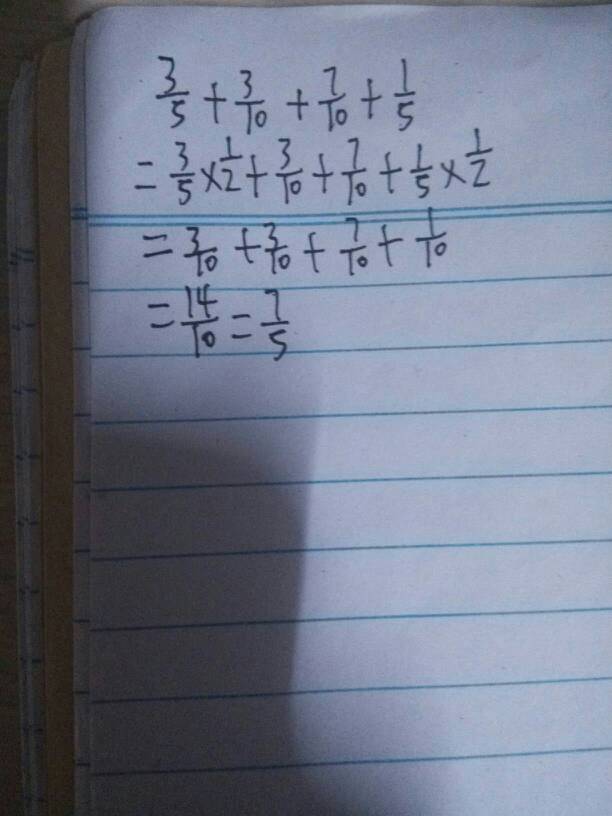 3/5 + 3/10 + 7/10 + 1/5
= 3/5 × 1/2 + 3/10 + 7/10 + 1/5 × 1/2
= 3/10 + 3/10 + 7/10 + 1/10
= 14/10 = 7/5